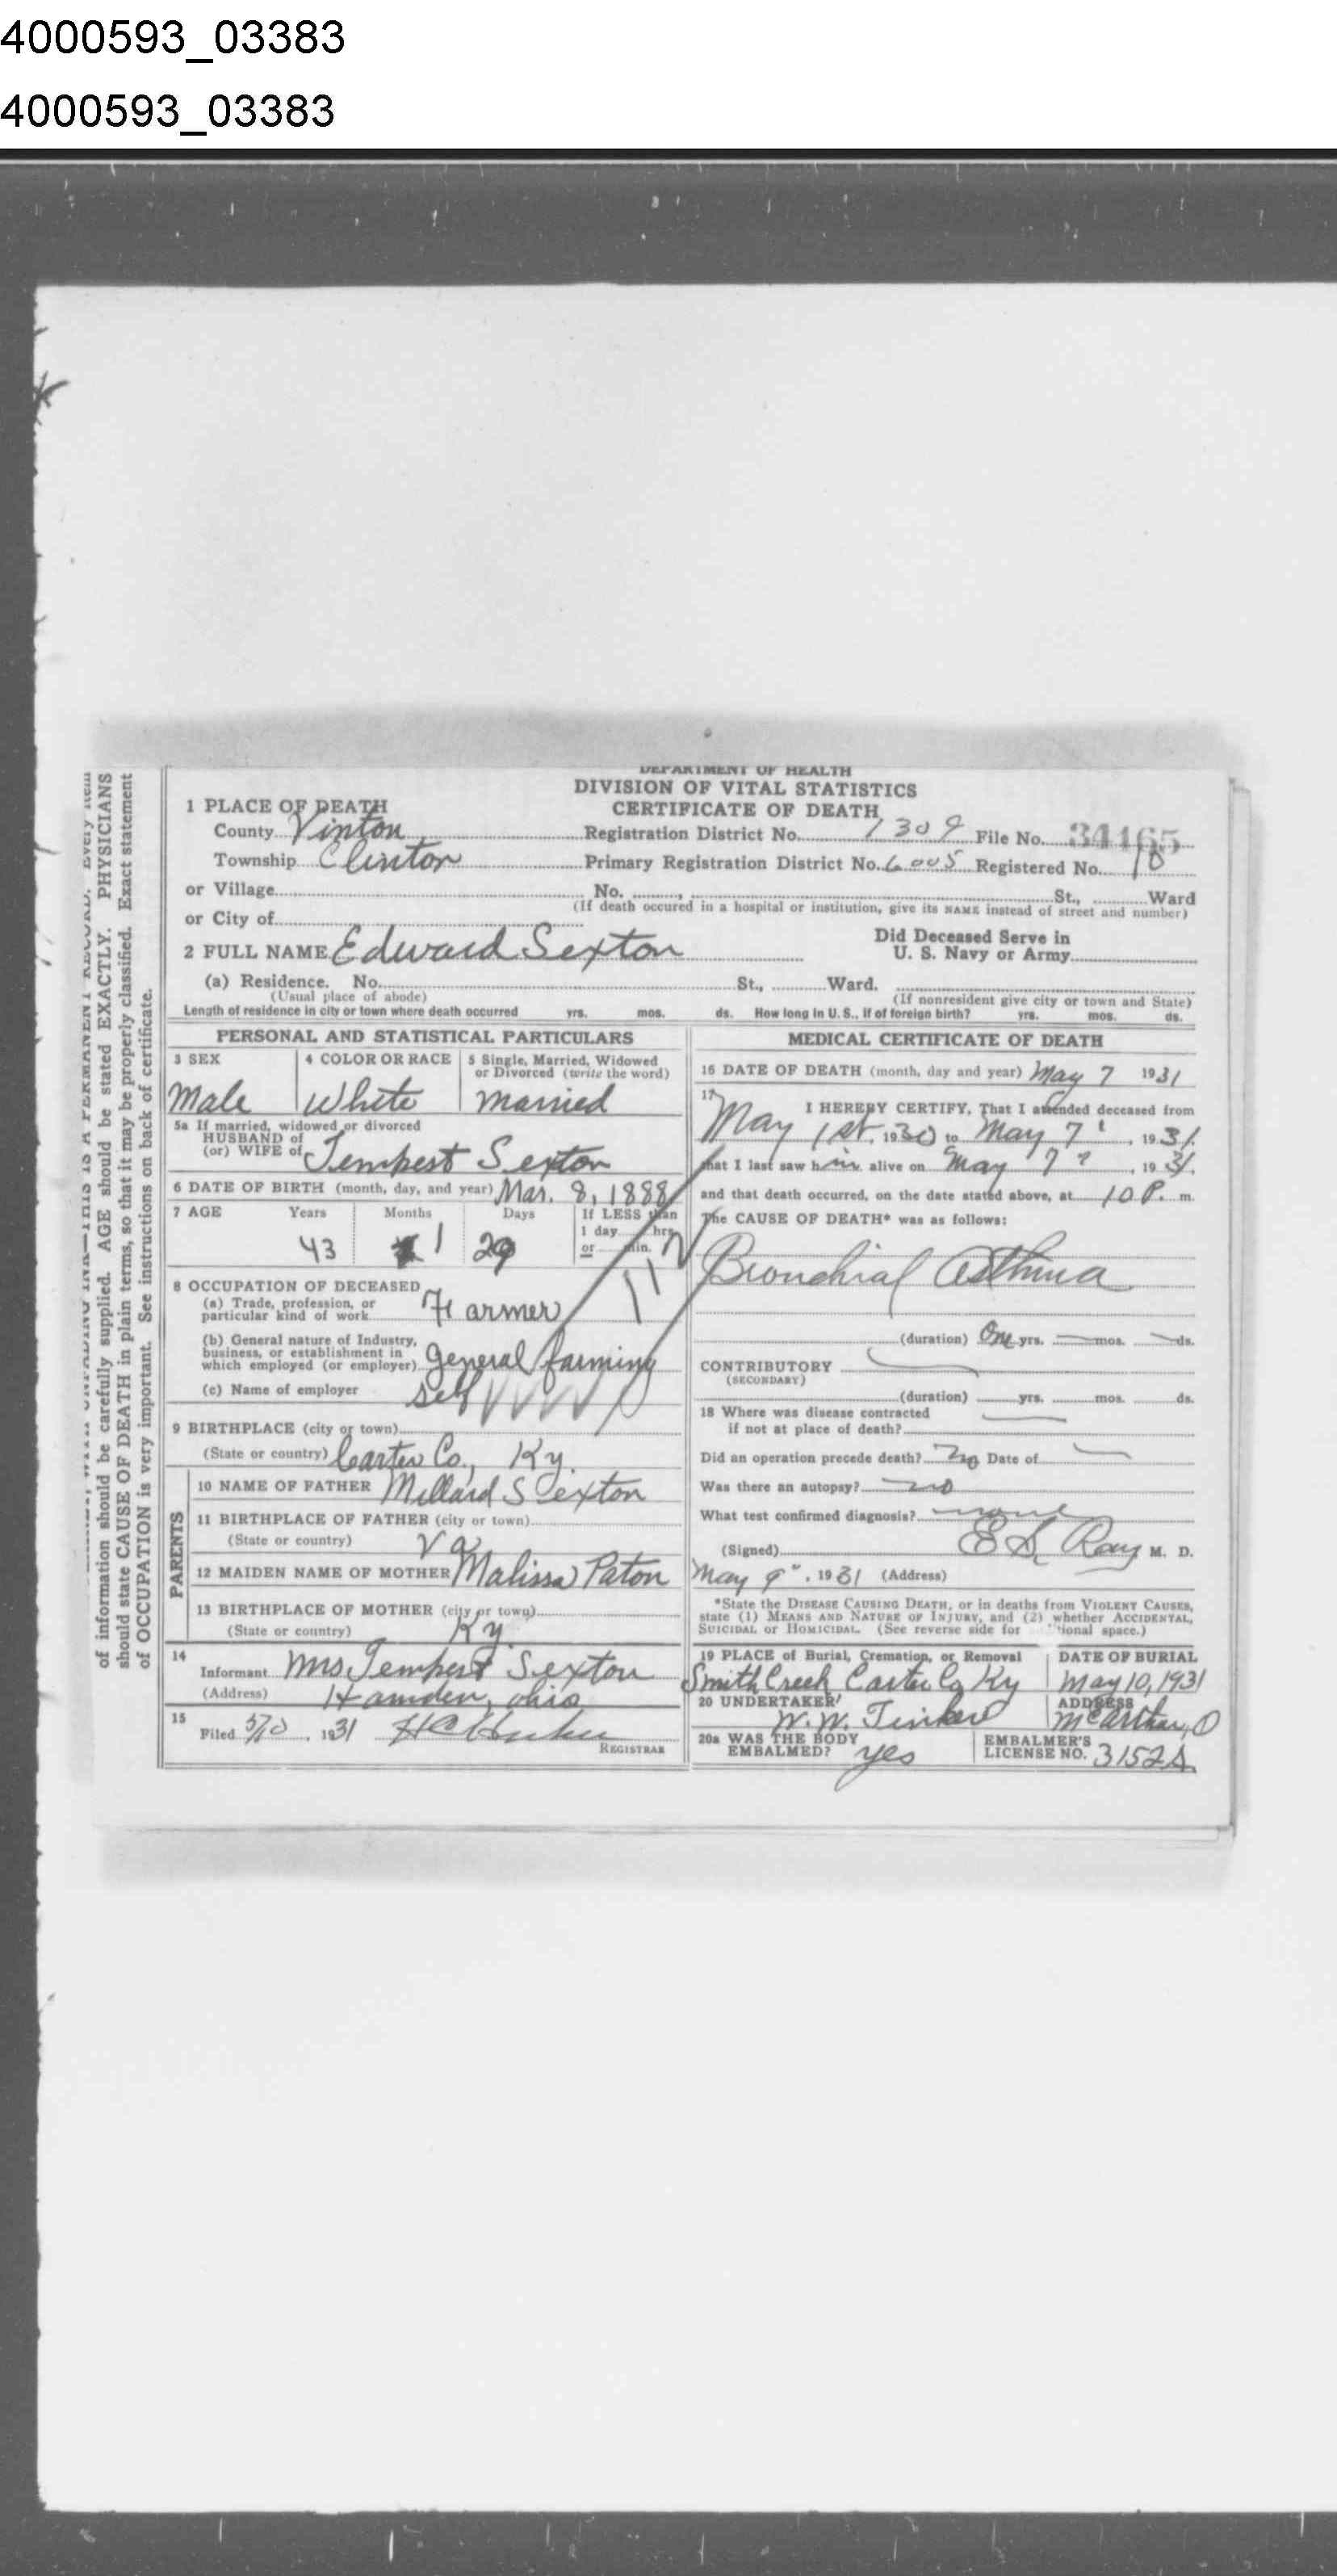 4000593_03383
4000593_03383
DEPARTMENT OF HEALTH
DIVISION OF VITAL STATISTICS
CERTIFICATE OF DEATH
1 PLACE OF DEATH
County Vinton Registration District No. 1309 File No. 34465
Township Clinton Primary Registration District No. 6005 Registered No. 10
or Village No. , St., Ward
(If death occured in a hospital or institution, give its NAME instead of street and number)
or City of
2 FULL NAME Edward Sexton Did Deceased Serve in
U. S. Navy or Army
(a) Residence. No. St., Ward.
(Usual place of abode) (If nonresident give city or town and State)
Length of residence in city or town where death occurred yrs. mos. ds. How long in U. S., if of foreign birth? yrs. mos. ds.
PERSONAL AND STATISTICAL PARTICULARS
3 SEX 4 COLOR OR RACE 5 Single, Married, Widowed
or Divorced (write the word)
Male White Married
5a If married, widowed or divorced
HUSBAND of
(or) WIFE of Tempest Sexton
6 DATE OF BIRTH (month, day, and year) Mar. 8, 1888
7 AGE Years Months Days If LESS than
1 day hrs.
or min.
43 1 29
8 OCCUPATION OF DECEASED
(a) Trade, profession, or
particular kind of work Farmer
(b) General nature of Industry,
business, or establishment in
which employed (or employer) General farming
(c) Name of employer self
9 BIRTHPLACE (city or town)
(State or country) Carter Co., Ky.
PARENTS
10 NAME OF FATHER Millard Sexton
11 BIRTHPLACE OF FATHER (city or town)
(State or country) Va
12 MAIDEN NAME OF MOTHER Malissa Paton
13 BIRTHPLACE OF MOTHER (city or town)
(State or country) Ky.
14
Informant Mrs Tempest Sexton
(Address) Hamden, Ohio
15
Filed 5/10 1931
REGISTRAR
MEDICAL CERTIFICATE OF DEATH
16 DATE OF DEATH (month, day and year) May 7 1931
17
I HEREBY CERTIFY, That I attended deceased from
May 1st, 1930 to May 7, 1931
that I last saw him alive on May 7, 1931.
and that death occurred, on the date stated above, at 10 P. m.
The CAUSE OF DEATH* was as follows:
Bronchial Asthma
(duration) One yrs. mos. ds.
CONTRIBUTORY
(SECONDARY)
(duration) yrs. mos. ds.
18 Where was disease contracted
if not at place of death?
Did an operation precede death? No Date of
Was there an autopsy? no
What test confirmed diagnosis? none
(Signed) E S. Ray M. D.
May 9", 1931 (Address)
*State the DISEASE CAUSING DEATH, or in deaths from VIOLENT CAUSES,
state (1) MEANS AND NATURE OF INJURY, and (2) whether ACCIDENTAL,
SUICIDAL or HOMICIDAL. (See reverse side for tional space.)
19 PLACE of Burial, Cremation, or Removal DATE OF BURIAL
Smith Creek Carter Co Ky May 10, 1931
20 UNDERTAKER ADDRESS
W. W. Tinker McArthur, O
20a WAS THE BODY
EMBALMED? yes EMBALMER'S
LICENSE NO. 3152A
of information should be carefully supplied. AGE should be stated EXACTLY. PHYSICIANS
should state CAUSE OF DEATH in plain terms, so that it may be properly classified. Exact statement
of OCCUPATION is very important. See instructions on back of certificate.